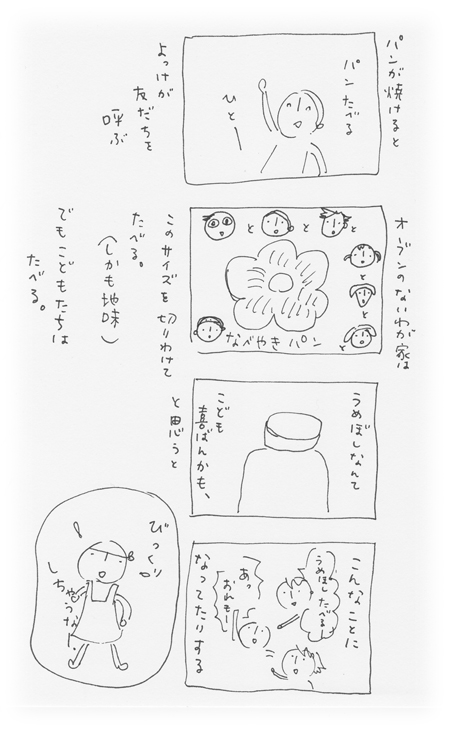 パンが焼けると
パンたべる
ひとー
よっけが
友だちを
呼ぶ
オーブンのないわが家は
と
と
と
と
と
と
なべやきパン
このサイズを切りわけて
たべる。
(しかも地味)
でもこどもたちは
たべる。
うめぼしなんて
こども
喜ばんかも、
と思うと
こんなことに
うめぼしたべる
あっ
おれもー
なってたりする
びっくり
しちゃうなー。
!